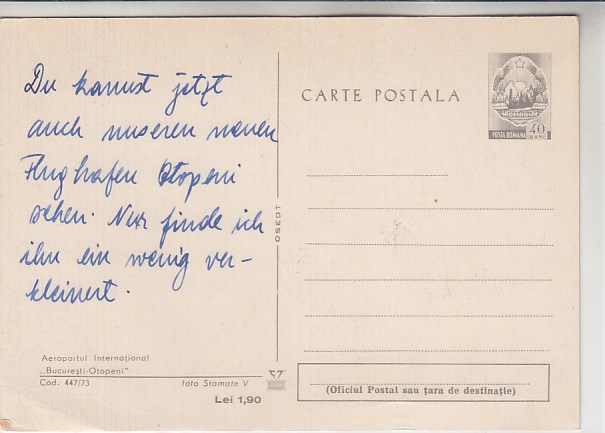 Du kannst jetzt
auch unseren neuen
Flughafen Otopeni
sehen. Nur finde ich
ihn ein wenig ver-
kleinert.
Aeroportul Internaţional
„Bucureşti-Otopeni"
Cod. 447/73
foto Stamate V
Lei 1,90
OSEDT
CARTE POSTALA
POSTA ROMANA
40
BANI
(Oficiul Postal sau ţara de destinaţie)